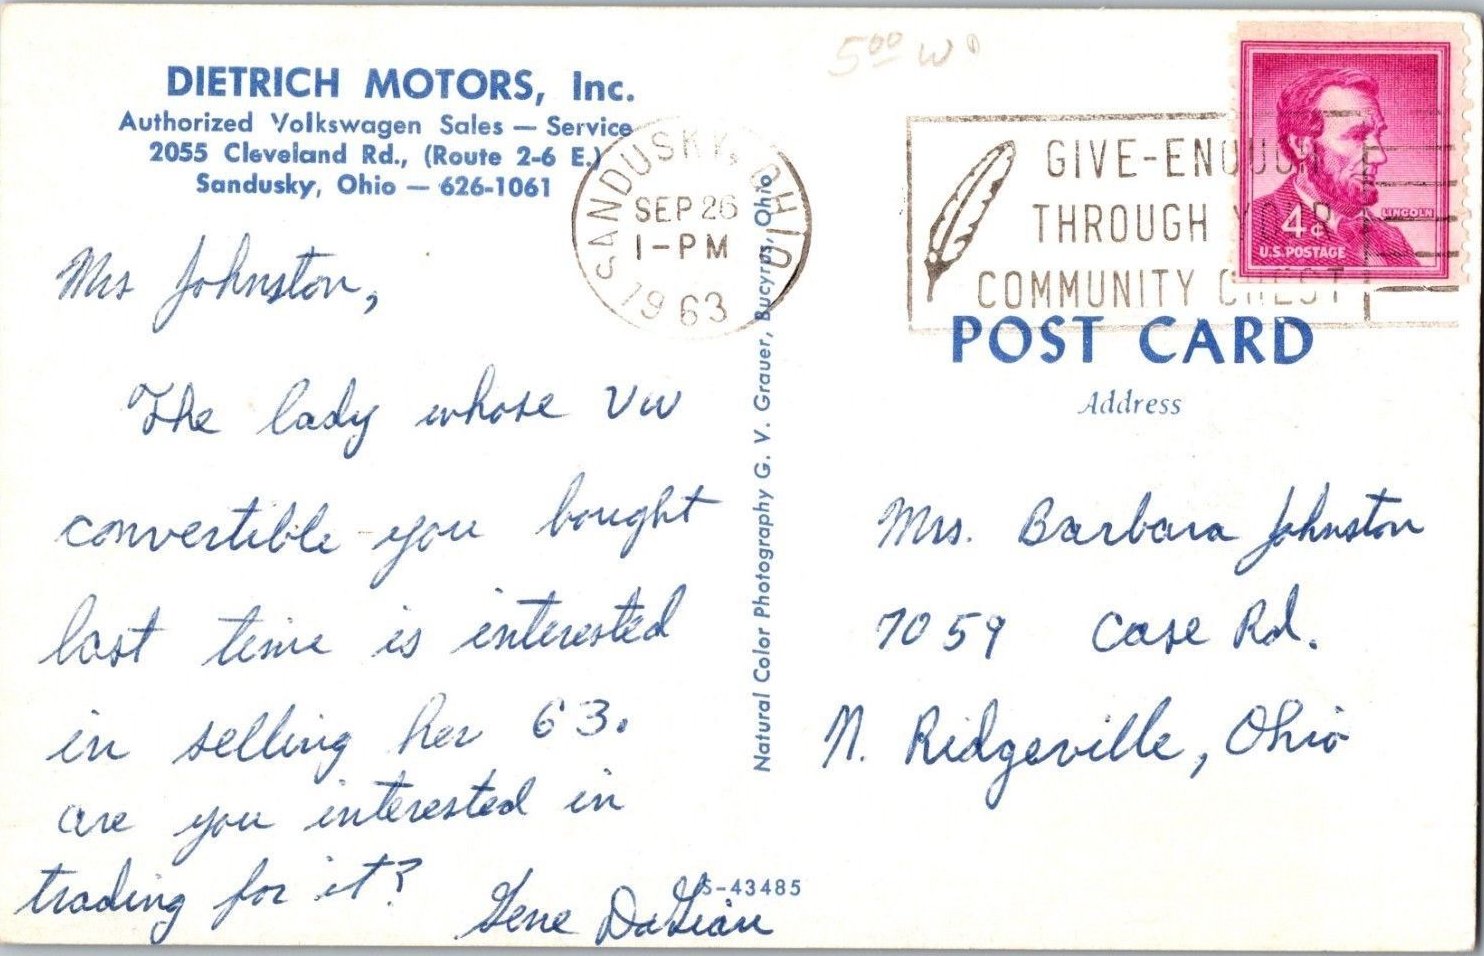 DIETRICH MOTORS, Inc.
Authorized Volkswagen Sales — Service
2055 Cleveland Rd., (Route 2-6 E.)
Sandusky, Ohio — 626-1061
Mrs Johnston,
The lady whose VW
convertible you bought
last time is interested
in selling her 63.
are you interested in
trading for it?
Gene
SANDUSKY, OHIO
SEP 26
1-PM
1963
Natural Color Photography G. V. Grauer, Bucyrus, Ohio
S-43485
5.00
GIVE-ENOUGH
THROUGH YOUR
COMMUNITY CHEST
LINCOLN
4¢
U.S. POSTAGE
POST CARD
Address
Mrs. Barbara Johnston
7059 Case Rd.
N. Ridgeville, Ohio